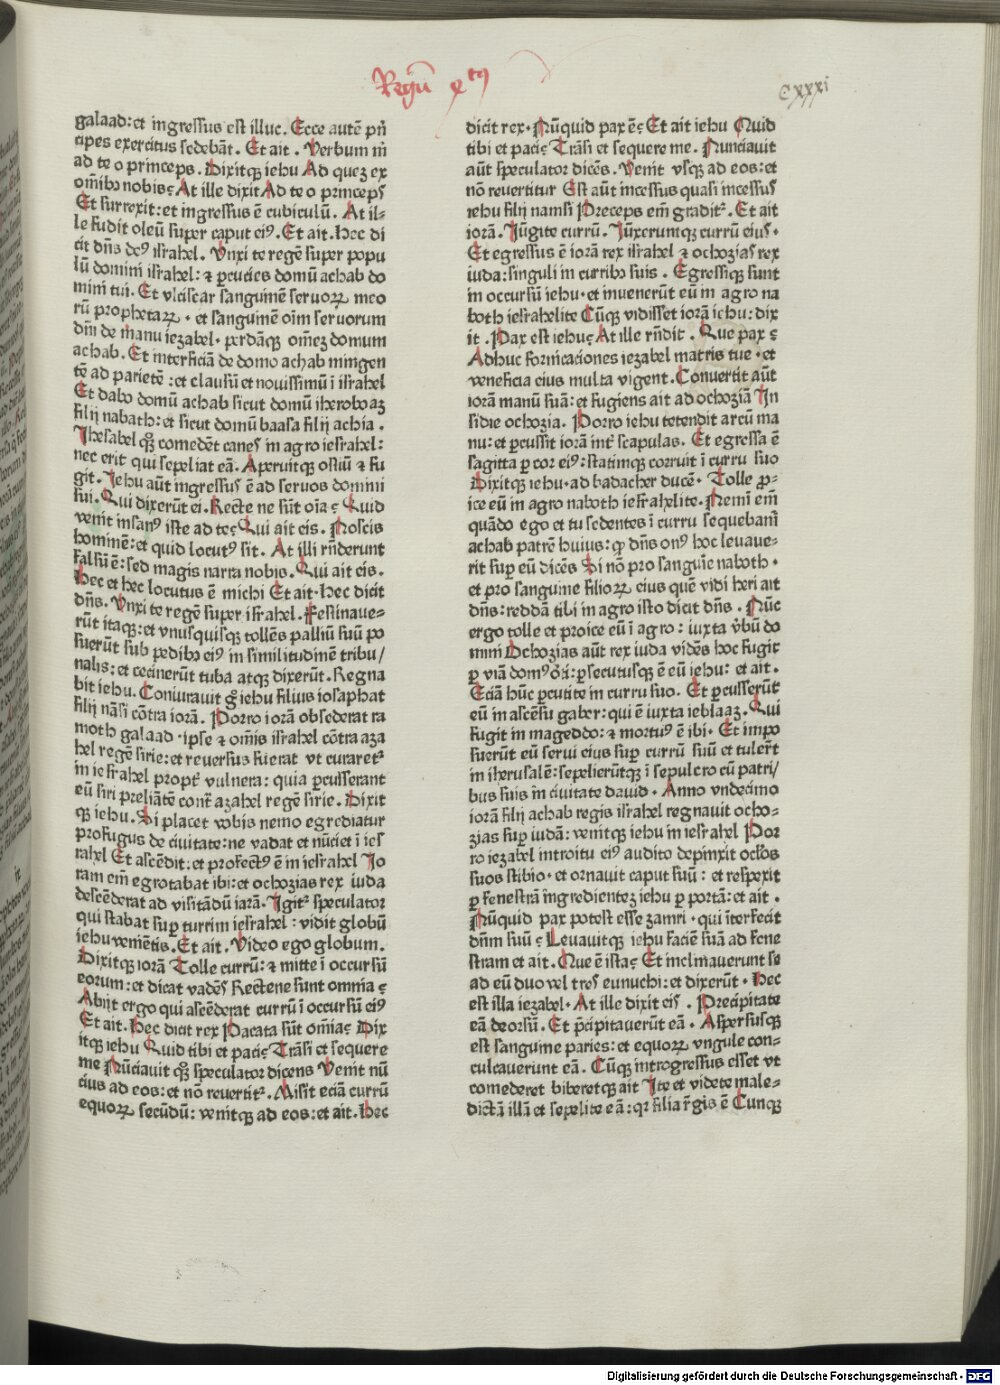 Regū
Cxxxi
galaad: et ingressus est illuc. Ecce autē pn̄
cipes exercitus sedebāt. Et ait. Verbum m̄
ad te o princeps. Dixitqꝫ iehu Ad queꝫ ex
om̄ibꝰ nobis? At ille dixit Ad te o princeps
Et surrexit: et ingressus ē cubiculū. At il⸗
le fudit oleū super caput eiꝰ. Et ait. Hec di
cit dn̄s deꝰ israhel. Vnxi te regē super popu
lū domini israhel: ⁊ ꝑcuties domū achab do
mini tui. Et vlciscar sanguinē seruoꝝ meo
rū prophetaꝝ · et sanguinē oīm seruorum
dn̄i de manu iezabel. perdāqꝫ om̄eꝫ domum
achab. Et interficiā de domo achab mingen
tē ad parietē: et clausū et nouissimū ī israhel
Et dabo domū achab sicut domū iheroboaꝫ
filij nabath: et sicut domū baasa filij achia.
Jhesabel qꝫ comedēt canes in agro iesrahel:
nec erit qui sepeliat eā. Aperuitqꝫ ostiū ⁊ fu
git. Jehu aūt ingressus ē ad seruos domini
sui. Qui dixerūt ei. Recte ne sūt oīa? Quid
venit insanꝰ iste ad te? Qui ait eis. Noscis
hominē: et quid locutꝰ sit. At illi rn̄derunt
falsū ē: sed magis narra nobis. Qui ait eis.
Hec et hec locutus ē michi Et ait. Hec dicit
dn̄s. Vnxi te regē super israhel. Festinaue⸗
rūt itaqꝫ: et vnusquisqꝫ tollēs palliū suū po
suerūt sub pedibꝰ eiꝰ in similitudinē tribu/
nalis: et cecinerūt tuba atqꝫ dixerūt. Regna
bit iehu. Coniurauit gͦ iehu filius iosaphat
filij nāsi cōtra iorā. Porro iorā obsederat ra
moth galaad · ipse ⁊ om̄is israhel cōtra aza
hel regē sirie: et reuersus fuerat vt curaretᷣ
in iesrahel propt̄ vulnera: quia ꝑcusserant
eū siri preliātē contͣ azahel regē sirie. Dixit
qꝫ iehu. Si placet vobis nemo egrediatur
profugus de ciuitate: ne vadat et nūciet ī ies
rahel Et ascēdit: et profectꝰ ē in iesrahel Jo
ram em̄ egrotabat ibi: et ochozias rex iuda
descēderat ad visitādū iarā. Jgitᷣ speculator
qui stabat suꝑ turrim iesrahel: vidit globū
iehu veniētis. Et ait. Video ego globum.
Dixitqꝫ iorā Tolle currū: ⁊ mitte ī occursū
eorum: et dicat vadēs Rectene sunt omnia?
Abijt ergo qui ascēderat currū ī occursū eiꝰ
Et ait. Hec dicit rex Pacata sūt om̄ia? Dix
itqꝫ iehu Quid tibi et paci? Trāsi et sequere
me Nūciauit qꝫ speculator dicens Venit nū
cius ad eos: et nō reuertitᷣ. Misit eciā currū
equoꝝ secūdū: venitqꝫ ad eos: et ait. Hec
dicit rex. Nūquid pax ē? Et ait iehu Quid
tibi et paci? Trāsi et sequere me. Nunciauit
aūt speculator dicēs. Venit vsqꝫ ad eos: et
nō reuertitur Est aūt incessus quasi incessus
iehu filij namsi Preceps em̄ graditᷣ. Et ait
iorā. Jūgite currū. Jūxerumqꝫ currū eius.
Et egressus ē iorā rex israhel ⁊ ochozias rex
iuda: singuli in curribꝰ suis. Egressiqꝫ sunt
in occursū iehu · et inuenerūt eū in agro na
both iesrahelite Cūqꝫ vidisset iorā iehu: dix
it. Pax est iehu? At ille rn̄dit. Que pax?
Adhuc fornicaciones iezabel matris tue · et
veneficia eius multa vigent. Conuertit aūt
iorā manū suā: et fugiens ait ad ochoziā Jn
sidie ochozia. Porro iehu tetendit arcū ma
nu: et ꝑcussit iorā int̄ scapulas. Et egressa ē
sagitta ꝑ cor eiꝰ: statimqꝫ corruit ī curru suo
Dixitqꝫ iehu · ad badacher ducē. Tolle ꝓ⸗
ice eū in agro naboth iesrahelite. Nemī em̄
quādo ego et tu sedentes ī curru sequebamͬ
achab patrē huius: qꝙ dn̄s onꝰ hoc leuaue⸗
rit suꝑ eū dicēs Si nō pro sanguīe naboth ·
et pro sanguine filioꝝ eius quē vidi heri ait
dn̄s: reddā tibi in agro isto dicit dn̄s. Nūc
ergo tolle et proice eū ī agro: iuxta v̄bū do
mini Ochozias aūt rex iuda vidēs hoc fugit
ꝑ viā domꝰ : ꝑsecutusqꝫ ē eū iehu: et ait.
Eciā hūc ꝑcutite in curru suo. Et ꝑcusserūt
eū in ascēsu gaber: qui ē iuxta ieblaaꝫ. Qui
fugit in mageddo: ⁊ mortuꝰ ē ibi. Et impo
suerūt eū serui eius suꝑ currū suū et tuler̄t
in iherusalē: sepelierūtqꝫ ī sepulcro cū patri/
bus suis in ciuitate dauid. Anno vndecimo
iorā filij achab regis israhel regnauit ocho⸗
zias suꝑ iudā: venitqꝫ iehu in iesrahel Por
ro iezabel introitu eiꝰ audito depinxit oc̄los
suos stibio · et ornauit caput suū: et respexit
ꝑ fenestrā īngredienteꝫ iehu ꝑ portā: et ait.
Nūquid pax potest esse zamri · qui īterfecit
dn̄m suū? Leuauitqꝫ iehu faciē suā ad fene
stram et ait. Que ē ista? Et inclinauerunt se
ad eū duo vel tres eunuchi: et dixerūt. Hec
est illa iezabel. At ille dixit eis. Precipitate
eā deorsū. Et p̄cipitauerūt eā. Aspersusqꝫ
est sanguine paries: et equoꝝ vngule con⸗
culcauerunt eā. Cūqꝫ introgressus esset vt
comederet biberetqꝫ ait Jte et videte male⸗
dictā illā et sepelite eā: qꝛ filia r̄gis ē Cunqꝫ
Digitalisierung gefördert durch die Deutsche Forschungsgemeinschaft - DFG